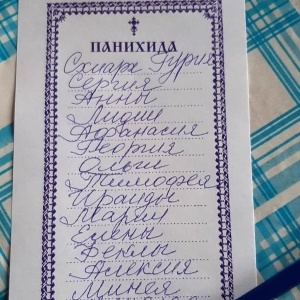 ПАНИХИДА
Схиарх Гурия
Сергия
Анны
Лидии
Афанасия
Георгия
Ольги
Тимофея
Ираиды
Марии
Елены
Феклы
Алексия
Минея